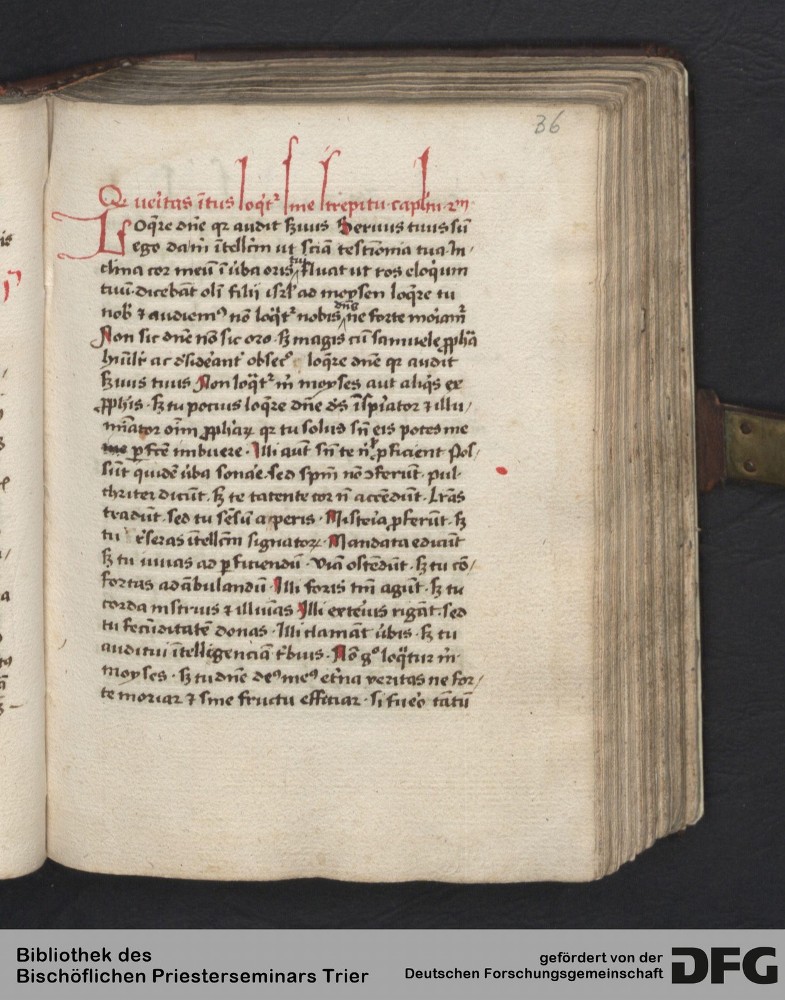 36
Qr veritas ītus loqt² sine strepitu. caplm 2m
LOqre dne qr audit s̄uus Seruus tuus sū
ego da m̄ ītellcm ut sciā testimonia tua. In/
clina cor meū ī ūba oris tui Fluat ut ros eloqium
tuū. dicebāt oli filii isrl' ad moysen loqre tu
nob' & audiemꝰ nō loqt² nobis dns ne forte moriam²
Non sic dne nō sic oro. s̄ magis cū samuele ꝓpha
hūilr ac dsideānt obsecᵒ loqre dne qr audit
s̄uus tuus Non loqt² m̄ moyses aut aliqs ex
ꝓphis. s̄ tu pocius loqre dne ds īspirator ⁊ illu/
minator oīm ꝓphaꝝ qr tu solus sn̄ eis potes me
me ꝑfce imbuere. Illi aūt sn̄ te n̄ ꝓficient Pos/
sūt quidē ūba sonare. sed spm̄ nō ↄferūt. pul
chriter dicūt. s̄ te tacente cor n̄ accēdūt. Lrās
tradūt. sed tu sēsū aperis. Misteria ꝓferūt. s̄
tu rseras ītellcm signatoꝝ. Mandata edicūt
s̄ tu iuuas ad ꝑficiendū. Viā ostēdūt. s̄ tu cō/
fortas ad ābulandū. Illi foris tm̄ agūt. s̄ tu
corda instruis ⁊ illuīas Illi exterius rigāt. sed
tu fecūditatē donas. Illi clamāt ūbis. s̄ tu
auditui ītelligenciā tbuis. Nō gᵒ loqtur m̄
moyses. s̄ tu dne deꝰ meꝰ etna veritas ne for/
te moriar ⁊ sine fructu efficiar. si fuero tātū
Bibliothek des
Bischöflichen Priesterseminars Trier
gefördert von der
Deutschen Forschungsgemeinschaft
DFG